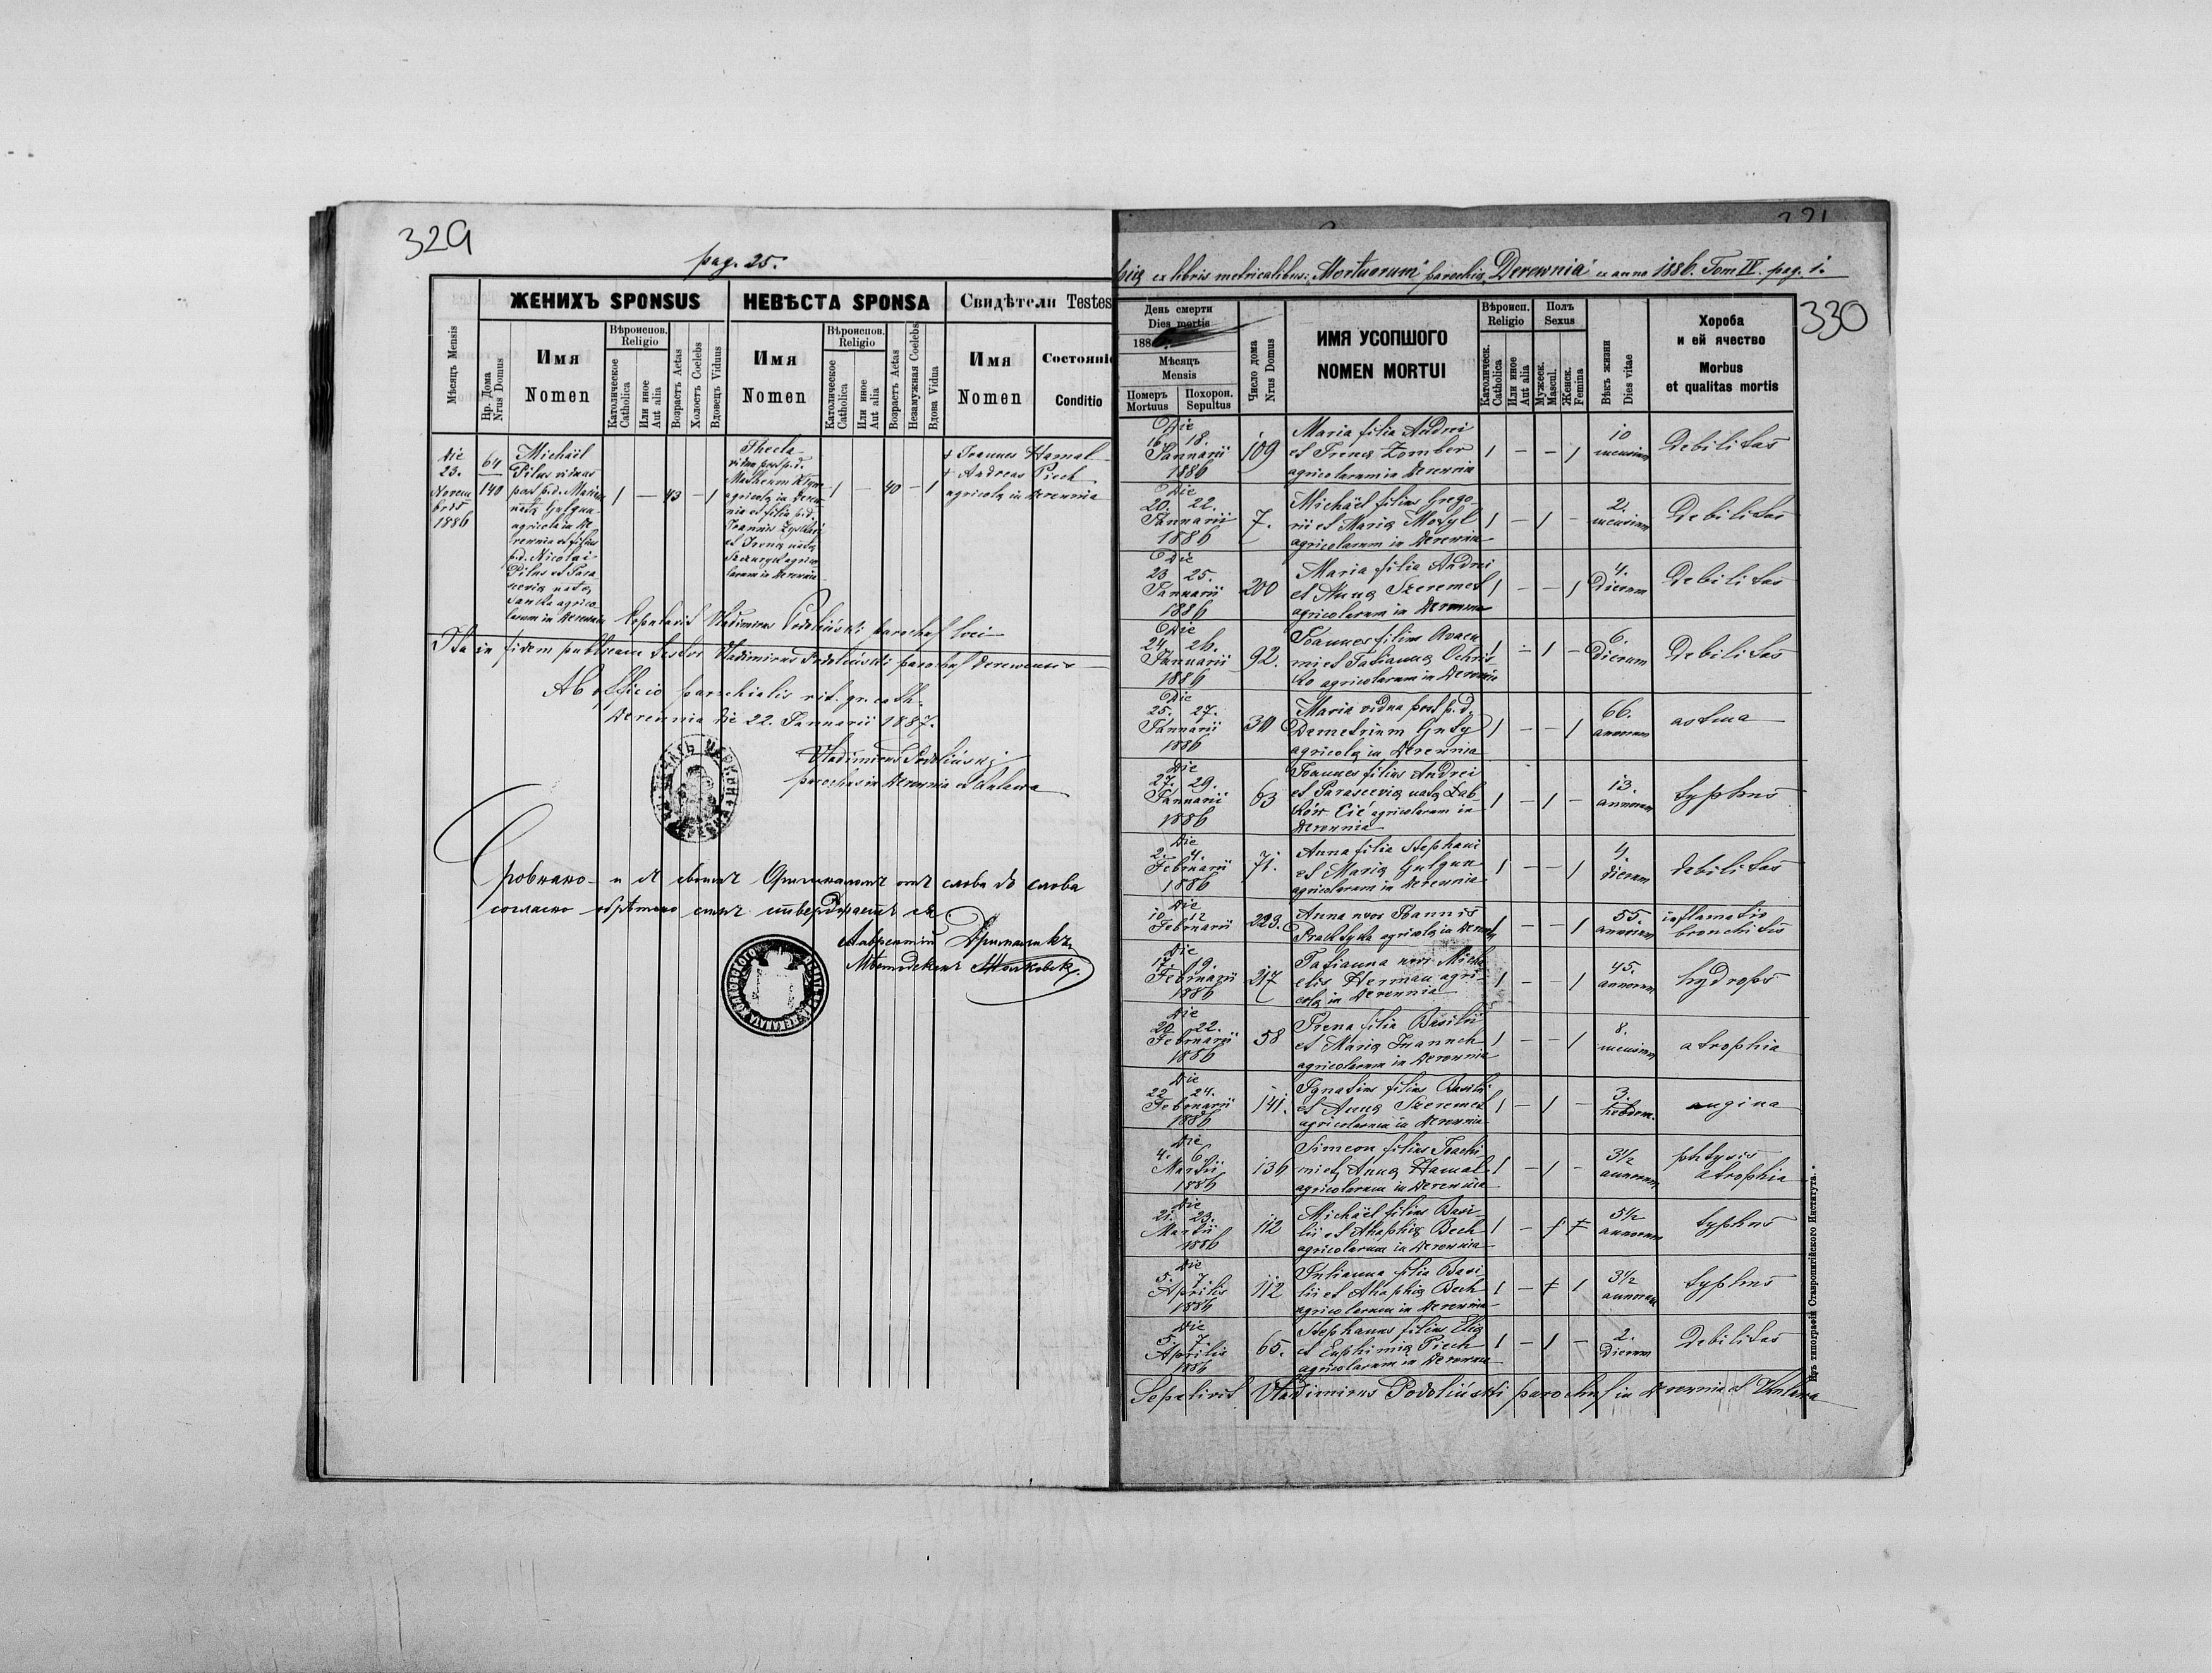 329
pag. 25.
ЖЕНИХЪ SPONSUS
НЕВѢСТА SPONSA
Свидѣтели Testes
Мѣсяцъ Mensis
Нр. Дома
Nrus Domus
Имя
Nomen
Вѣроиспов.
Religio
Католическое
Catholica
Или иное
Aut alia
Возрастъ Aetas
Холостъ Coelebs
Вдовецъ Viduus
Имя
Nomen
Вѣроиспов.
Religio
Католическое
Catholica
Или иное
Aut alia
Возрастъ Aetas
Незамужная Coelebs
Вдова Vidua
Имя
Nomen
Состояніе
Conditio
die
23.
Novem
bris
1886
64
140
Michaël
Pilus viduus
post p.d. Mariam
natą Gulgun
agricola in De
rewnia et filius
p.d. Nicolai
Pilus et Para
scevią natą
agrico
larum in Derewnia
1 — 43 — 1
Thecla
vidua post p.d.
Matheum
agricolą in Derew
nia et filia p.d.
Joannis
et Irena natą
agrico
larum in Derewnia
1 — 40 — 1
+ Joannes Hamal
+ Andreas Piech
agricolą in Derewnia
Copulavit Vladimirus Podoliński parochus loci
Ita in fidem publicam testor Vladimirus Podoliński parochus Derewnensis
Ab officio parochialis rit. gr. cath.
Derewnia die 22. Januarii 1887.
Vladimirus Podoliński
parochus in Derewnia et Kulawa
Сровнано и съ своимъ Оригиналомъ отъ слова до слова
согласно обрѣтено симъ ствердждаетъ ся
330
ex libris metricalibus: „Mortuorum" parochią „Derewnia" ex anno 1886. Tom IV. pag. 1.
День смерти
Dies mortis
188
Мѣсяцъ
Mensis
Померъ
Mortuus
Похорон.
Sepultus
Число дома
Nrus Domus
ИМЯ УСОПШОГО
NOMEN MORTUI
Вѣроисп.
Religio
Католическ.
Catholica
Или иное
Aut alia
Полъ
Sexus
Мужеск.
Mascul.
Женск.
Femina
Вѣкъ жизни
Dies vitae
Хороба
и ей ячество
Morbus
et qualitas mortis
Die
16. 18.
Januarii
1886
109
Maria filia Andrei
et Irena Zombor
agricolarum in Derewnia
1 — — 1
10
mensium
Debilitas
Die
20. 22.
Januarii
1886
7.
Michaël filius Grego
rii et Marią Motyl
agricolarum in Derewnia
1 — 1 —
2.
mensium
Debilitas
Die
23 25.
Januarii
1886
200
Maria filia Andrei
et Anną Szeremet
agricolarum in Derewnia
1 — — 1
4.
Dierum
Debilitas
Die
24. 26.
Januarii
1886
92.
Joannes filius Avacu
mi et Tatianną Ochris
ko agricolarum in Derewnia
1 — 1 —
6.
Dierum
Debilitas
Die
25. 27.
Januarii
1886
30
Maria vidua post p.d.
Demetrium Guty
agricolą in Derewnia
1 — — 1
66.
annorum
astma
Die
27. 29.
Januarii
1886
63
Joannes filius Andrei
et Parascevią natą Dab
ków Cić agricolarum in
Derewnia
1 — 1 —
13.
annorum
typhus
Die
2. 4.
Februarii
1886
71.
Anna filia Stephani
et Marią Gulgun
agricolarum in Derewnia
1 — — 1
4
dierum
debilitas
Die
10 12
Februarii
223.
Anna uxor Joannis
Prachtyka agricolą in Derewnia
1 — — 1
55.
annorum
inflamatio
bronchitis
Die
17. 19.
Februarii
1886
217
Tatianna uxor Micha
elis Herman agri
colą in Derewnia
1 — — 1
45.
annorum
hydrops
Die
20 22.
Februarii
1886
58
Irena filia Basilii
et Marią Iwanneh
agricolarum in Derewnia
1 — — 1
8.
mensium
atrophia
Die
22 24.
Februarii
1886
141.
Ignatius filius Basilii
et Anną Szeremet
agricolarum in Derewnia
1 — 1 —
3.
hebdom.
angina
Die
4. 6.
Martii
1886
136
Simeon filius Joachi
mi et Anną Hamal
agricolarum in Derewnia
1 — 1 —
3½
annorum
phtysis
atrophia
Die
21. 23.
Martii
1886
112
Michaël filius Basi
lii et Ahaphią Bech
agricolarum in Derewnia
1 —
5½
annorum
typhus
Die
5. 7.
Aprilis
1886
112
Julianna filia Basi
lii et Ahaphią Bech
agricolarum in Derewnia
1 — 1
3½
annorum
typhus
Die
5. 7.
Aprilis
1886
65.
Stephanus filius Elią
et Euphimią Piech
agricolarum in Derewnia
1 — 1 —
2.
Dierum
Debilitas
Sepelivit Vladimirus Podoliński parochus in Derewnia et Kulawa
Изъ типографіи Ставропигійского Института.